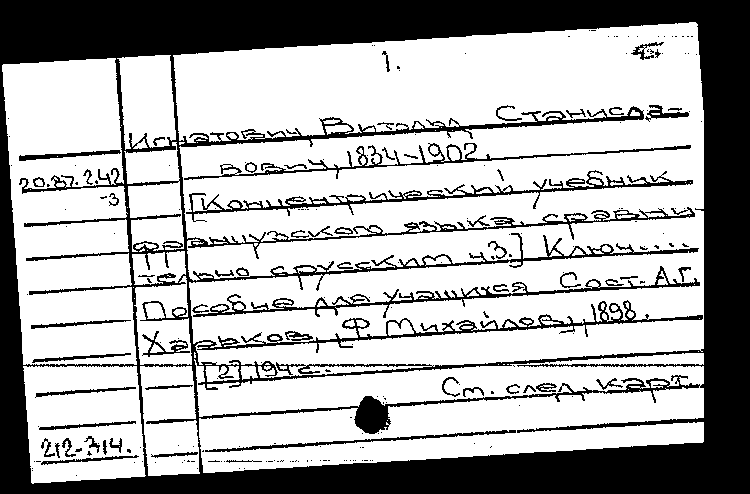 1.
Игнатович, Витольд Станисла-
вович, 1834-1902.
20.87.2.42
-3
[Концентрический учебник
французского языка сравни-
тельно с русским ч.3.] Ключ....
Пособие для учащихся Сост. А.Г.
Харьков, [Ф. Михайлов], 1898.
[2], 194 с.
См. след. карт.
212-314.